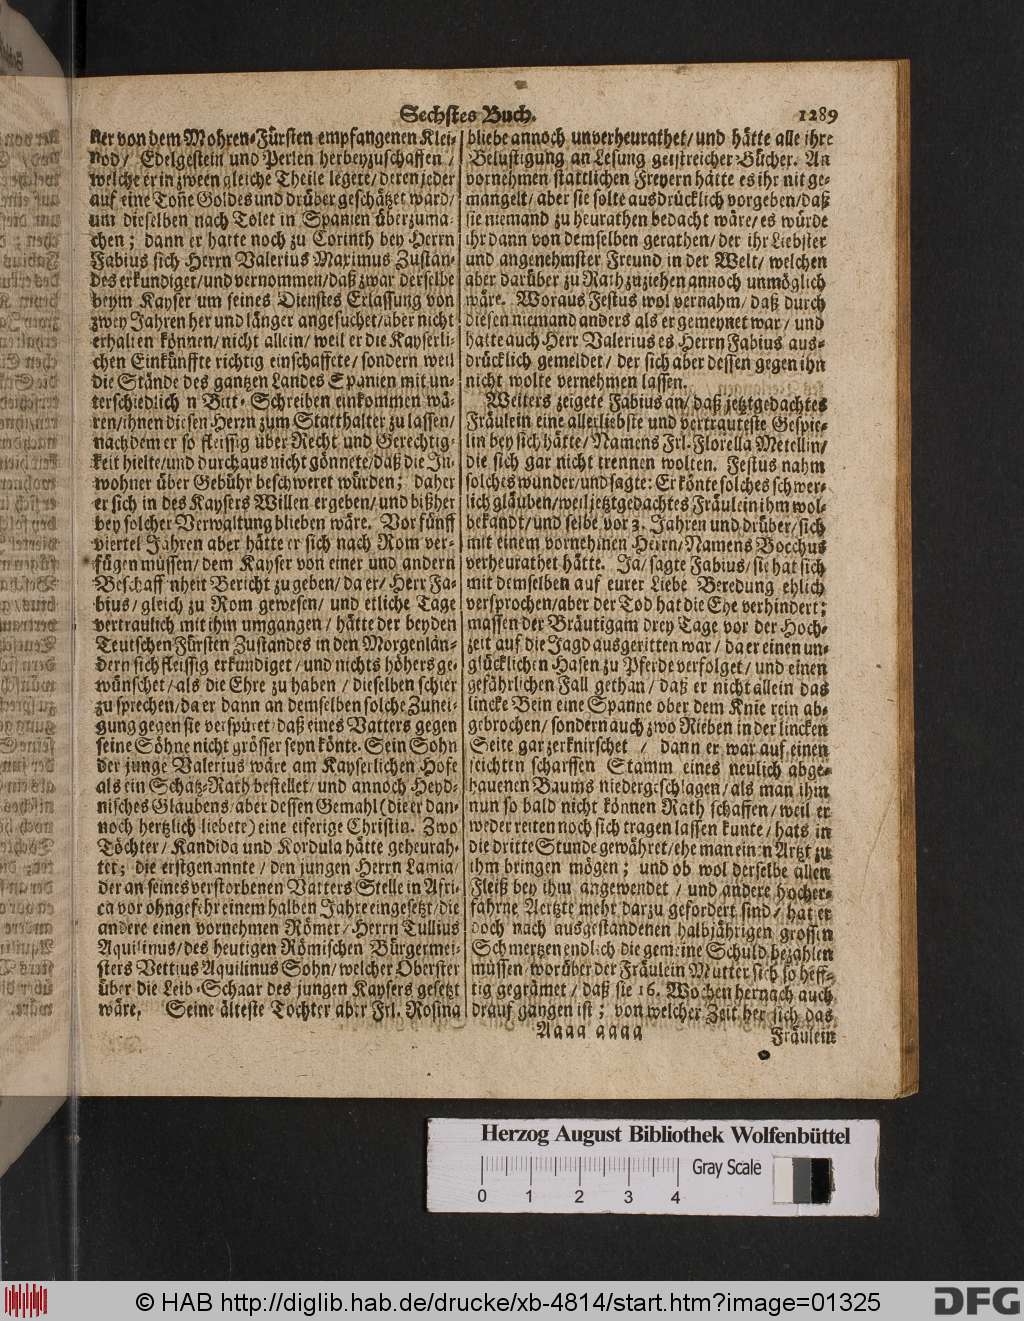 Sechstes Buch. 1289
ner von dem Mohren-Fürsten empfangenen Klei-
nod/ Edelgestein und Perlen herbeyzuschaffen/
welche er in zween gleiche Theile legete/ deren jeder
auf eine Toñe Goldes und drüber geschätzet ward/
um dieselben nach Tolet in Spanien überzuma-
chen; dann er hatte noch zu Corinth bey Herrn
Fabius sich Herrn Valerius Maximus Zustan-
des erkundiget/ und vernommen/ daß zwar derselbe
beym Kayser um seines Dienstes Erlassung von
zwey Jahren her und länger angesuchet/ aber nicht
erhalten können/ nicht allein/ weil er die Kayserli-
chen Einkünffte richtig einschaffete/ sondern weil
die Stände des gantzen Landes Spanien mit un-
terschiedlich n Bitt-Schreiben einkommen wä-
ren/ ihnen diesen Herrn zum Statthalter zu lassen/
nachdem er so fleissig über Recht und Gerechtig-
keit hielte/ und durchaus nicht gönnete/ daß die In-
wohner über Gebühr beschweret würden; daher
er sich in des Kaysers Willen ergeben/ und bißher
bey solcher Verwaltung blieben wäre. Vor fünff
viertel Jahren aber hätte er sich nach Rom ver-
fügen müssen/ dem Kayser von einer und andern
Beschaff nheit Bericht zu geben/ da er/ Herr Fa-
bius/ gleich zu Rom gewesen/ und etliche Tage
vertraulich mit ihm umgangen/ hätte der beyden
Teutschen Fürsten Zustandes in den Morgenlän-
dern sich fleissig erkundiget/ und nichts höhers ge-
wünschet/ als die Ehre zu haben/ dieselben schier
zu sprechen/ da er dann an demselben solche Zunei-
gung gegen sie verspüret/ daß eines Vatters gegen
seine Söhne nicht grösser seyn könte. Sein Sohn
der junge Valerius wäre am Kayserlichen Hofe
als ein Schatz-Rath bestellet/ und annoch Heyd-
nisches Glaubens/ aber dessen Gemahl (die er dan-
noch hertzlich liebete) eine eiferige Christin. Zwo
Töchter/ Kandida und Kordula hätte geheurah-
tet; die erstgenannte/ den jungen Herrn Lamia/
der an seines verstorbenen Vatters Stelle in Afri-
ca vor ohngefehr einem halben Jahre eingesetzt/ die
andere einen vornehmen Römer/ Herrn Tullius
Aquilinus/ des heutigen Römischen Bürgermei-
sters Vettius Aquilinus Sohn/ welcher Oberster
über die Leib-Schaar des jungen Kaysers gesetzt
wäre. Seine älteste Tochter aber Frl. Rosina
bliebe annoch unverheurathet/ und hätte alle ihre
Belustigung an Lesung geistreicher Bücher. An
vornehmen stattlichen Freyern hätte es ihr nit ge-
mangelt/ aber sie solte ausdrücklich vorgeben/ daß
sie niemand zu heurathen bedacht wäre/ es würde
ihr dann von demselben gerathen/ der ihr Liebster
und angenehmster Freund in der Welt/ welchen
aber darüber zu Rath zuziehen annoch unmöglich
wäre. Woraus Festus wol vernahm/ daß durch
diesen niemand anders als er gemeynet war/ und
hatte auch Herr Valerius es Herrn Fabius aus-
drücklich gemeldet/ der sich aber dessen gegen ihn
nicht wolte vernehmen lassen.
Weiters zeigete Fabius an/ daß jetztgedachtes
Fräulein eine allerliebste und vertrauteste Gespie-
lin bey sich hätte/ Namens Frl. Florella Metellin/
die sich gar nicht trennen wolten. Festus nahm
solches wunder/ und sagte: Er könte solches schwer-
lich gläuben/ weil jetztgedachtes Fräulein ihm wol-
bekandt/ und selbe vor 3. Jahren und drüber/ sich
mit einem vornehmen Herrn/ Namens Bocchus
verheurathet hätte. Ja/ sagte Fabius/ sie hat sich
mit demselben auf eurer Liebe Beredung ehlich
versprochen/ aber der Tod hat die Ehe verhindert;
massen der Bräutigam drey Tage vor der Hoch-
zeit auf die Jagd ausgeritten war/ da er einen un-
glücklichen Hasen zu Pferde verfolget/ und einen
gefährlichen Fall gethan/ daß er nicht allein das
lincke Bein eine Spanne ober dem Knie rein ab-
gebrochen/ sondern auch zwo Rieben in der lincken
Seite gar zerknirschet/ dann er war auf einen
seichten scharffen Stamm eines neulich abge-
hauenen Baums niedergeschlagen/ als man ihm
nun so bald nicht können Rath schaffen/ weil er
weder reiten noch sich tragen lassen kunte/ hats in
die dritte Stunde gewähret/ ehe man einen Artzt zu
ihm bringen mögen; und ob wol derselbe allen
Fleiß bey ihm angewendet/ und andere hocher-
fahrne Aertzte mehr darzu gefordert sind/ hat er
doch nach ausgestandenen halbjährigen grossen
Schmertzen endlich die gemeine Schuld bezahlen
müssen/ worüber der Fräulein Mutter sich so heff-
tig gegrämet/ daß sie 16. Wochen hernach auch
drauf gangen ist; von welcher Zeit her sich das
Aaaa aaaa
Fräulein
Herzog August Bibliothek Wolfenbüttel
Gray Scale
0 1 2 3 4
© HAB http://diglib.hab.de/drucke/xb-4814/start.htm?image=01325
DFG